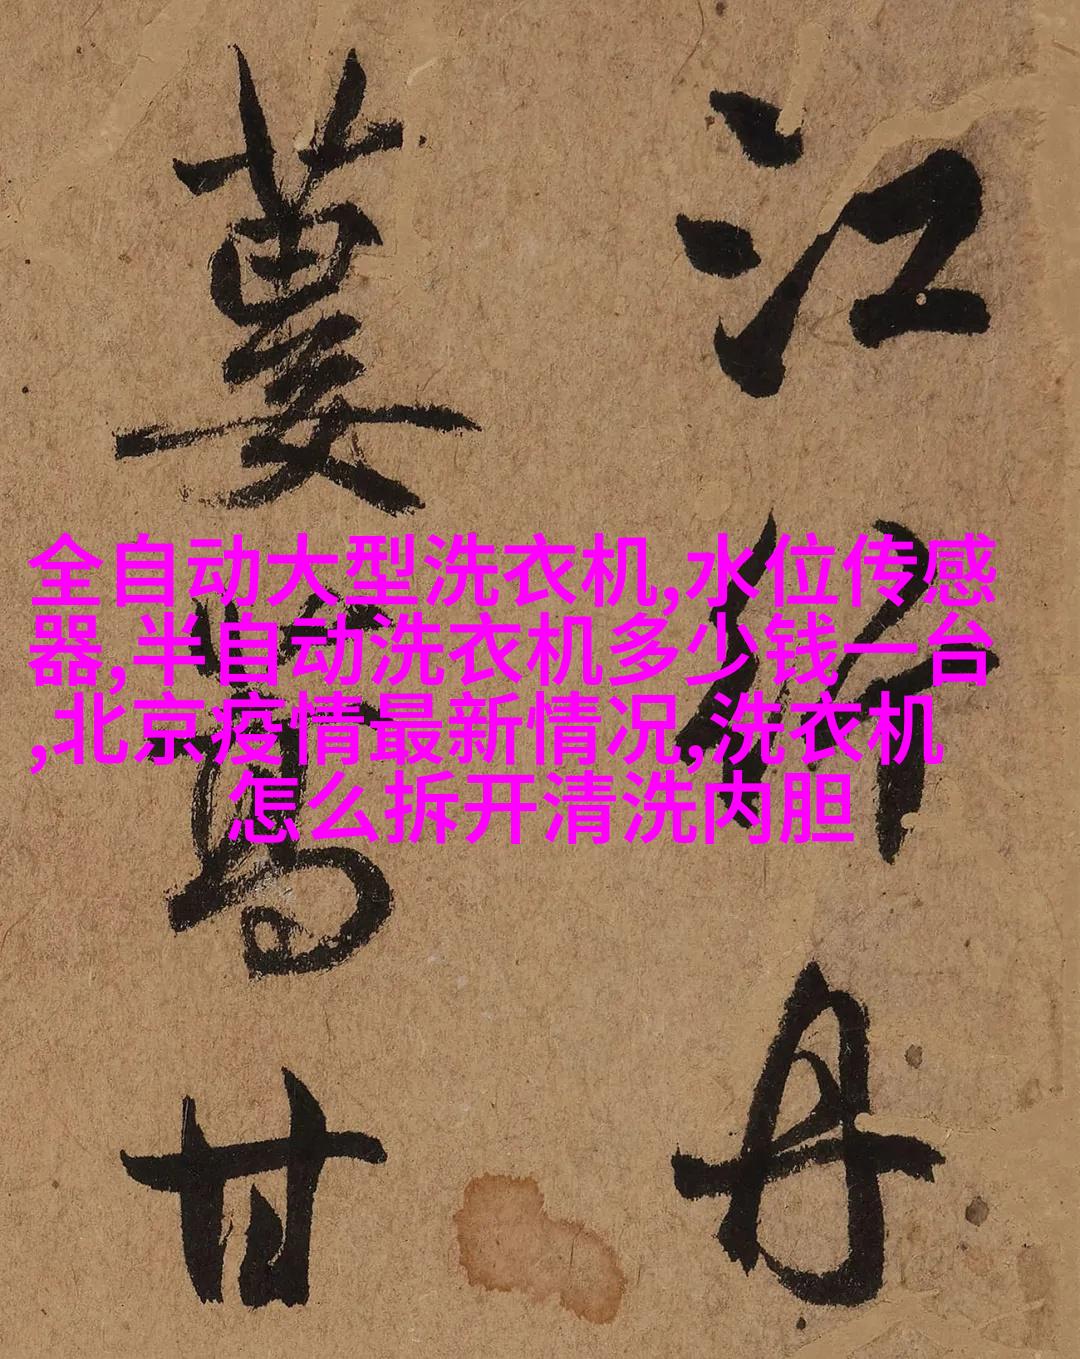 江丹
蔞蒿甘
全自动大型洗衣机,水位传感
器,半自动洗衣机多少钱一台
,北京疫情最新情况,洗衣机
怎么拆开清洗内胆